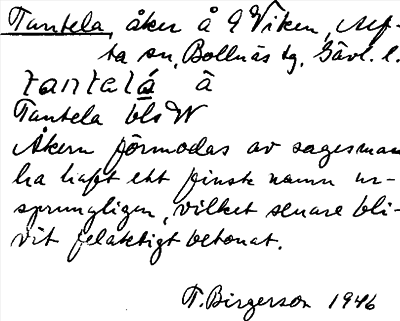 Tantela, åker å 9 Viken, Alf-
ta sn, Bollnäs tg, Gävl. l.
tantelá â
Tantela bls W
Åkern förmodas av sagesman
ha haft ett finskt namn ur-
sprungligen, vilket senare bli-
vit felaktigt betonat.
T. Birgerson 1946